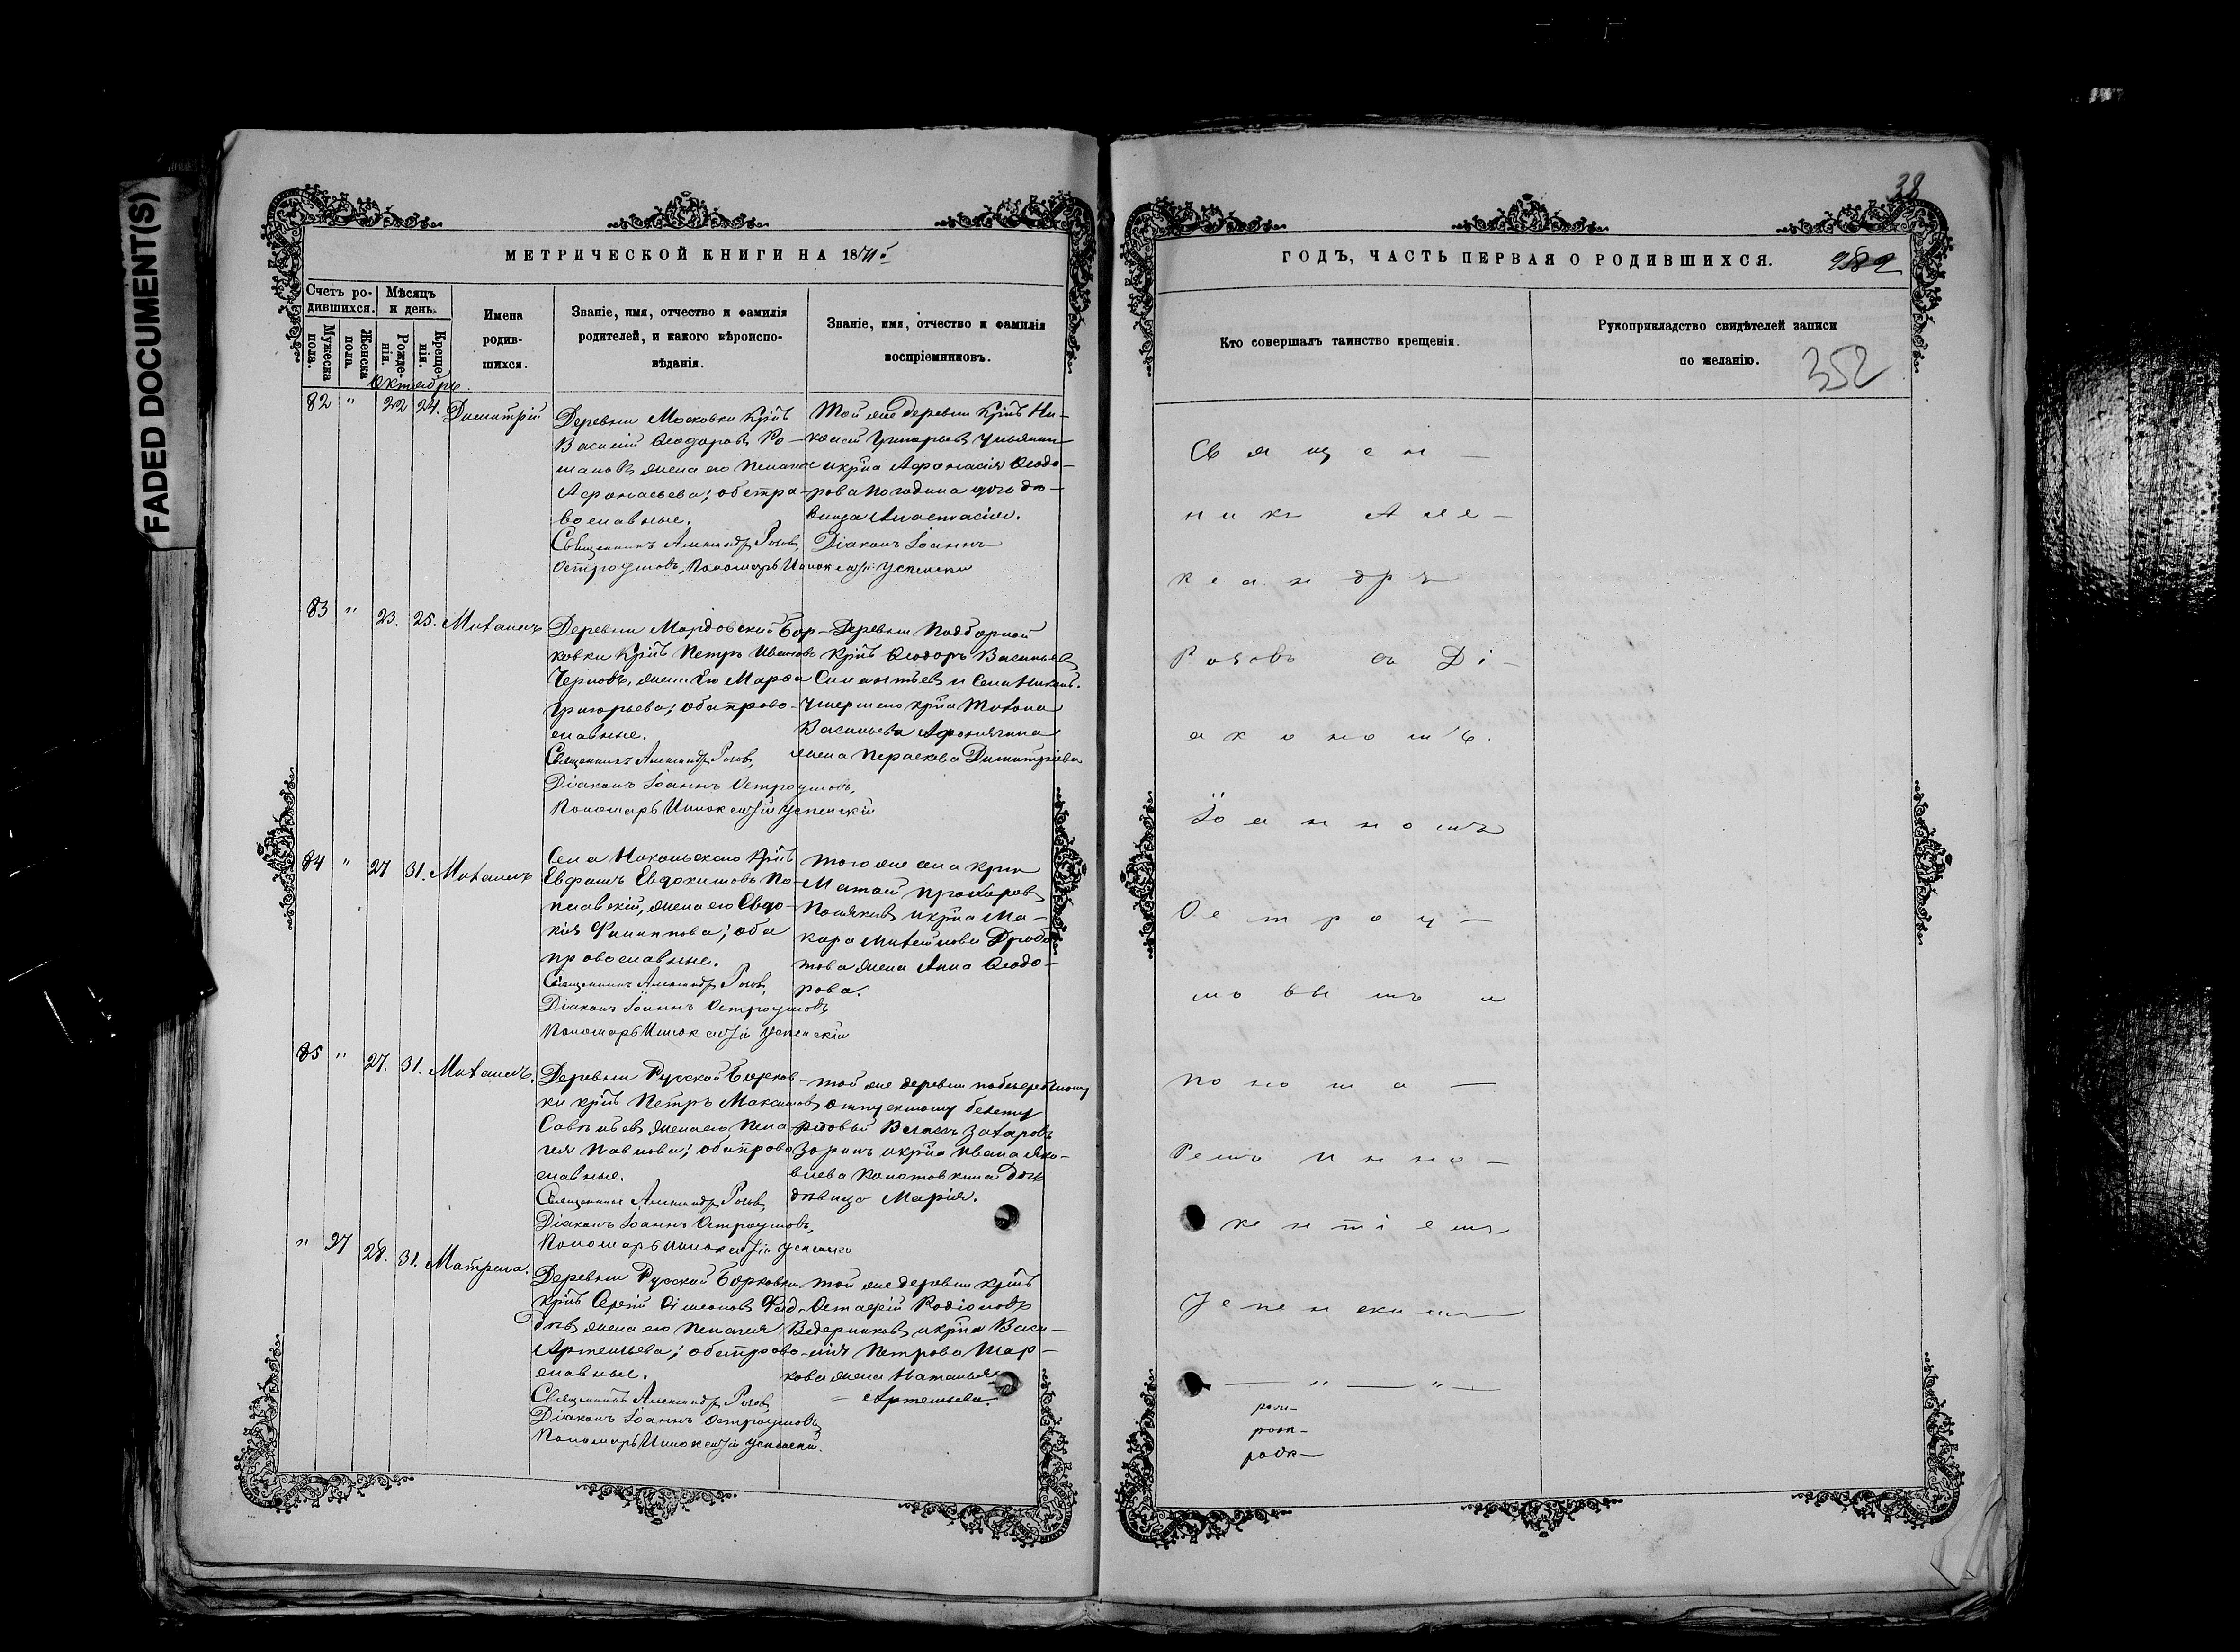 FADED DOCUMENT(S)
МЕТРИЧЕСКОЙ КНИГИ НА 1871
Счетъ ро-
дившихся.
Мужеска пола.
Женска пола.
Мѣсяцъ
и день.
Рожде-
нія.
Креще-
нія.
Имена
родив-
шихся.
Званіе, имя, отчество и фамилія
родителей, и какого вѣроиспо-
вѣданія.
Званіе, имя, отчество и фамилія
воспріемниковъ.
Октябрь.
82 " 22 24. Димитрій
Деревни Московки Крнъ
Василій Ѳеодоровъ Ро-
мановъ жена его
Афонасьева; оба пра-
вославные.
Священникъ Александръ Роговъ, Діаконъ Іоаннъ
Остроумовъ, Пономарь Иннокентій Успенскій
Той же деревни Крнъ Ни-
колай Григорьевъ
и крна Афонасія Ѳеодо-
рова Погодина дочь дѣ-
вица Анастасія.
83 " 23. 25. Михаилъ
Деревни Мордовской Бор-
ковки Крнъ Петръ Ивановъ
Черновъ, жена его Марѳа
Григорьева; оба право-
славные.
Священникъ Александръ Роговъ,
Діаконъ Іоаннъ Остроумовъ,
Пономарь Иннокентій Успенскій
Деревни Подборной
Крнъ Ѳеодоръ Васильевъ
и Села Никол.
умершего крна
Васильева Афонягина
жена Параскева Димитріева
84 " 27 31. Михаилъ
Села Никольскаго Крнъ
Евфимъ Евдокимовъ По-
плавскій, жена его Евдо-
кія Филиппова; оба
православные.
Священникъ Александръ Роговъ,
Діаконъ Іоаннъ Остроумовъ
Пономарь Иннокентій Успенскій
Того же села Крнъ
Матвей Прохоровъ
Поляковъ и крна Ма-
кара Дробо-
това жена Анна Ѳеодо-
рова.
85 " 27. 31. Михаилъ.
Деревни Русской Борков-
ки крнъ Петръ Максимовъ
Савельевъ жена его Пела-
гея Павлова; оба право-
славные.
Священникъ Александръ Роговъ,
Діаконъ Іоаннъ Остроумовъ,
Пономарь Иннокентій Успенскій
той же деревни по безсрочному
отпускному билету
рядовый Власъ Захаровъ
Зоринъ и крна Ивана Яко-
влева Колотовкина дочь
дѣвица Марія.
" 97 28. 31. Матрена.
Деревни Русской Борковки
крнъ Сергій Симеоновъ
жена его Пелагея
Артемьева; оба право-
славные.
Священникъ Александръ Роговъ,
Діаконъ Іоаннъ Остроумовъ,
Пономарь Иннокентій Успенскій.
той же деревни крнъ
Родіоновъ
Ведерниковъ и крна Васи-
лія Петрова Мар-
кова жена Наталья
Артемьева.
38
ГОДЪ, ЧАСТЬ ПЕРВАЯ О РОДИВШИХСЯ.
982
Кто совершалъ таинство крещенія.
Рукоприкладство свидѣтелей записи
по желанію.
352
Священ-
никъ Але-
ксандръ
Роговъ съ Ді-
акономъ.
Іоанномъ
Остроу-
мовымъ и
понома-
ремъ Инно-
кентіемъ
Успенскимъ
— " — " —